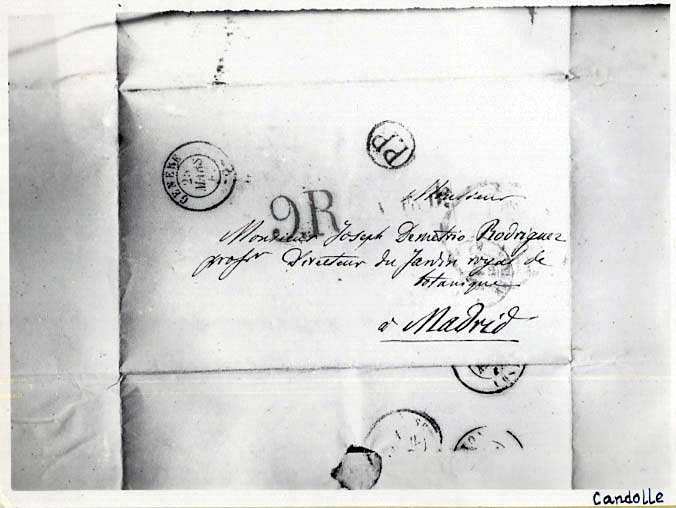 PP
GENEVE
25
MARS
9R
Monsieur
Monsieur Joseph Demetrio Rodriguez
profr Directeur du Jardin royal de
botanique
à Madrid
Candolle